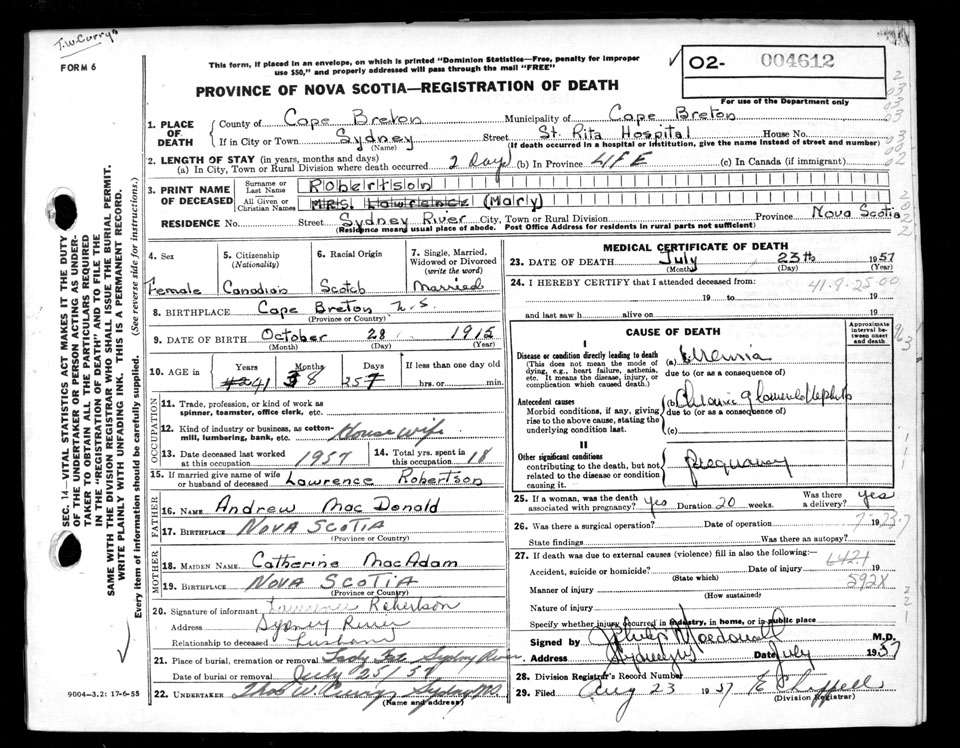 T.W. Curry
FORM 6
This form, if placed in an envelope, on which is printed "Dominion Statistics—Free, penalty for improper
use $50," and properly addressed will pass through the mail "FREE"
O2- 004612
For use of the Department only
PROVINCE OF NOVA SCOTIA—REGISTRATION OF DEATH
1. PLACE OF DEATH County of Cape Breton Municipality of Cape Breton
If in City or Town Sydney Street St. Rita Hospital House No.
(Name) (If death occurred in a hospital or institution, give the name instead of street and number)
2. LENGTH OF STAY (in years, months and days)
(a) In City, Town or Rural Division where death occurred 2 Days (b) In Province LIFE (c) In Canada (if immigrant)
3. PRINT NAME OF DECEASED Surname or Last Name Robertson
All Given or Christian Names Mrs. Lawrence (Mary)
RESIDENCE No. Street Sydney River City, Town or Rural Division Province Nova Scotia
(Residence means usual place of abode. Post Office Address for residents in rural parts not sufficient)
4. Sex Female
5. Citizenship (Nationality) Canadian
6. Racial Origin Scotch
7. Single, Married, Widowed or Divorced (write the word) Married
8. BIRTHPLACE Cape Breton N.S
(Province or County)
9. DATE OF BIRTH October 28 1915
(Month) (Day) (Year)
10. AGE in Years 41 Months 8 Days 25 If less than one day old
hrs. or min.
OCCUPATION
11. Trade, profession, or kind of work as
spinner, teamster, office clerk, etc.
12. Kind of industry or business, as cotton-
mill, lumbering, bank, etc. House wife
13. Date deceased last worked at this occupation 1957 14. Total yrs. spent in this occupation 18
15. If married give name of wife
or husband of deceased Lawrence Robertson
FATHER
16. NAME Andrew Mac Donald
17. BIRTHPLACE NOVA SCOTIA
(Province or Country)
MOTHER
18. MAIDEN NAME Catherine MacAdam
19. BIRTHPLACE NOVA SCOTIA
(Province or Country)
20. Signature of informant Lawrence Robertson
Address Sydney River
Relationship to deceased husband
21. Place of burial, cremation or removal Sydney River
Date of burial, cremation or removal July 25/57
22. UNDERTAKER Thos W. Curry, Sydney NS
(Name and address)
MEDICAL CERTIFICATE OF DEATH
23. DATE OF DEATH July 23th 1957
(Month) (Day) (Year)
24. I HEREBY CERTIFY that I attended deceased from: 41-9-25-00
19 to 19
and last saw h alive on 19
CAUSE OF DEATH
Approximate interval between onset and death
I
Disease or condition directly leading to death (a) Uremia
(This does not mean the mode of dying, e.g., heart failure, asthenia, etc. It means the disease, injury, or complication which caused death.)
due to (or as a consequence of)
Antecedent causes (b) Chronic glomerulo Nephritis
Morbid conditions, if any, giving rise to the above cause, stating the underlying condition last.
due to (or as a consequence of)
(c)
II
Other significant conditions
contributing to the death, but not related to the disease or condition causing it. pregnancy
25. If a woman, was the death associated with pregnancy? yes Duration 20 weeks. Was there a delivery? yes
26. Was there a surgical operation? Date of operation 19
State findings Was there an autopsy?
27. If death was due to external causes (violence) fill in also the following:
Accident, suicide or homicide? Date of injury 19
(State which)
642.1
592X
Manner of injury
(How sustained)
Nature of injury
Specify whether injury occurred in industry, in home, or in public place
Signed by M.D.
Address Sydney NS Date July 1957
28. Division Registrar's Record Number
29. Filed Aug 23 1957
(Division Registrar)
SEC. 14—VITAL STATISTICS ACT MAKES IT THE DUTY
OF THE UNDERTAKER OR PERSON ACTING AS UNDER-
TAKER TO OBTAIN ALL THE PARTICULARS REQUIRED
IN THE "REGISTRATION OF DEATH" AND TO FILE THE
SAME WITH THE DIVISION REGISTRAR WHO SHALL ISSUE THE BURIAL PERMIT.
WRITE PLAINLY WITH UNFADING INK. THIS IS A PERMANENT RECORD.
Every item of information should be carefully supplied. (See reverse side for instructions.)
9004-3.2: 17-6-55